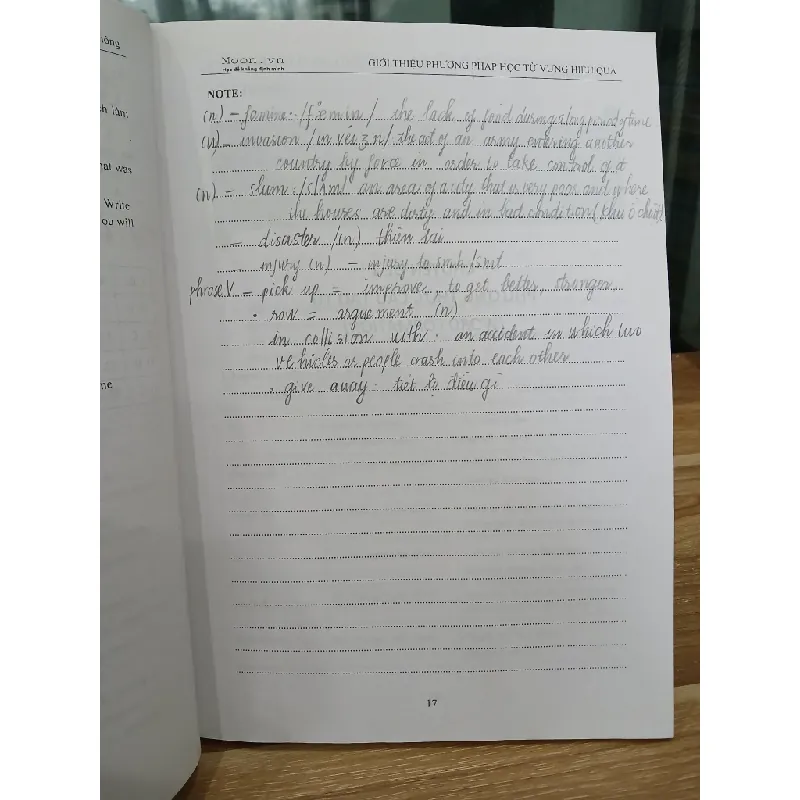 ông
Moon.vn
Học để khẳng định mình
GIỚI THIỆU PHƯƠNG PHÁP HỌC TỪ VỰNG HIỆU QUẢ
NOTE:
(n) - famine: /fæmin/ the lack of food during a long period of time
(n) - invasion /in'veiʒn/ the act of an army entering another
country by force in order to take control of it
(n) - slum: /slʌm/ an area of a city that is very poor and where
the houses are dirty and in bad condition (khu ổ chuột)
- disaster (n) thiên tai
injury (n) - injury to smb/smt
phrase V - pick up = improve: to get better, stronger
• row = arguement (n)
in collision with: an accident in which two
vehicles or people crash into each other
• give away: tiết lộ điều gì
was
Write
ou will
ne
17